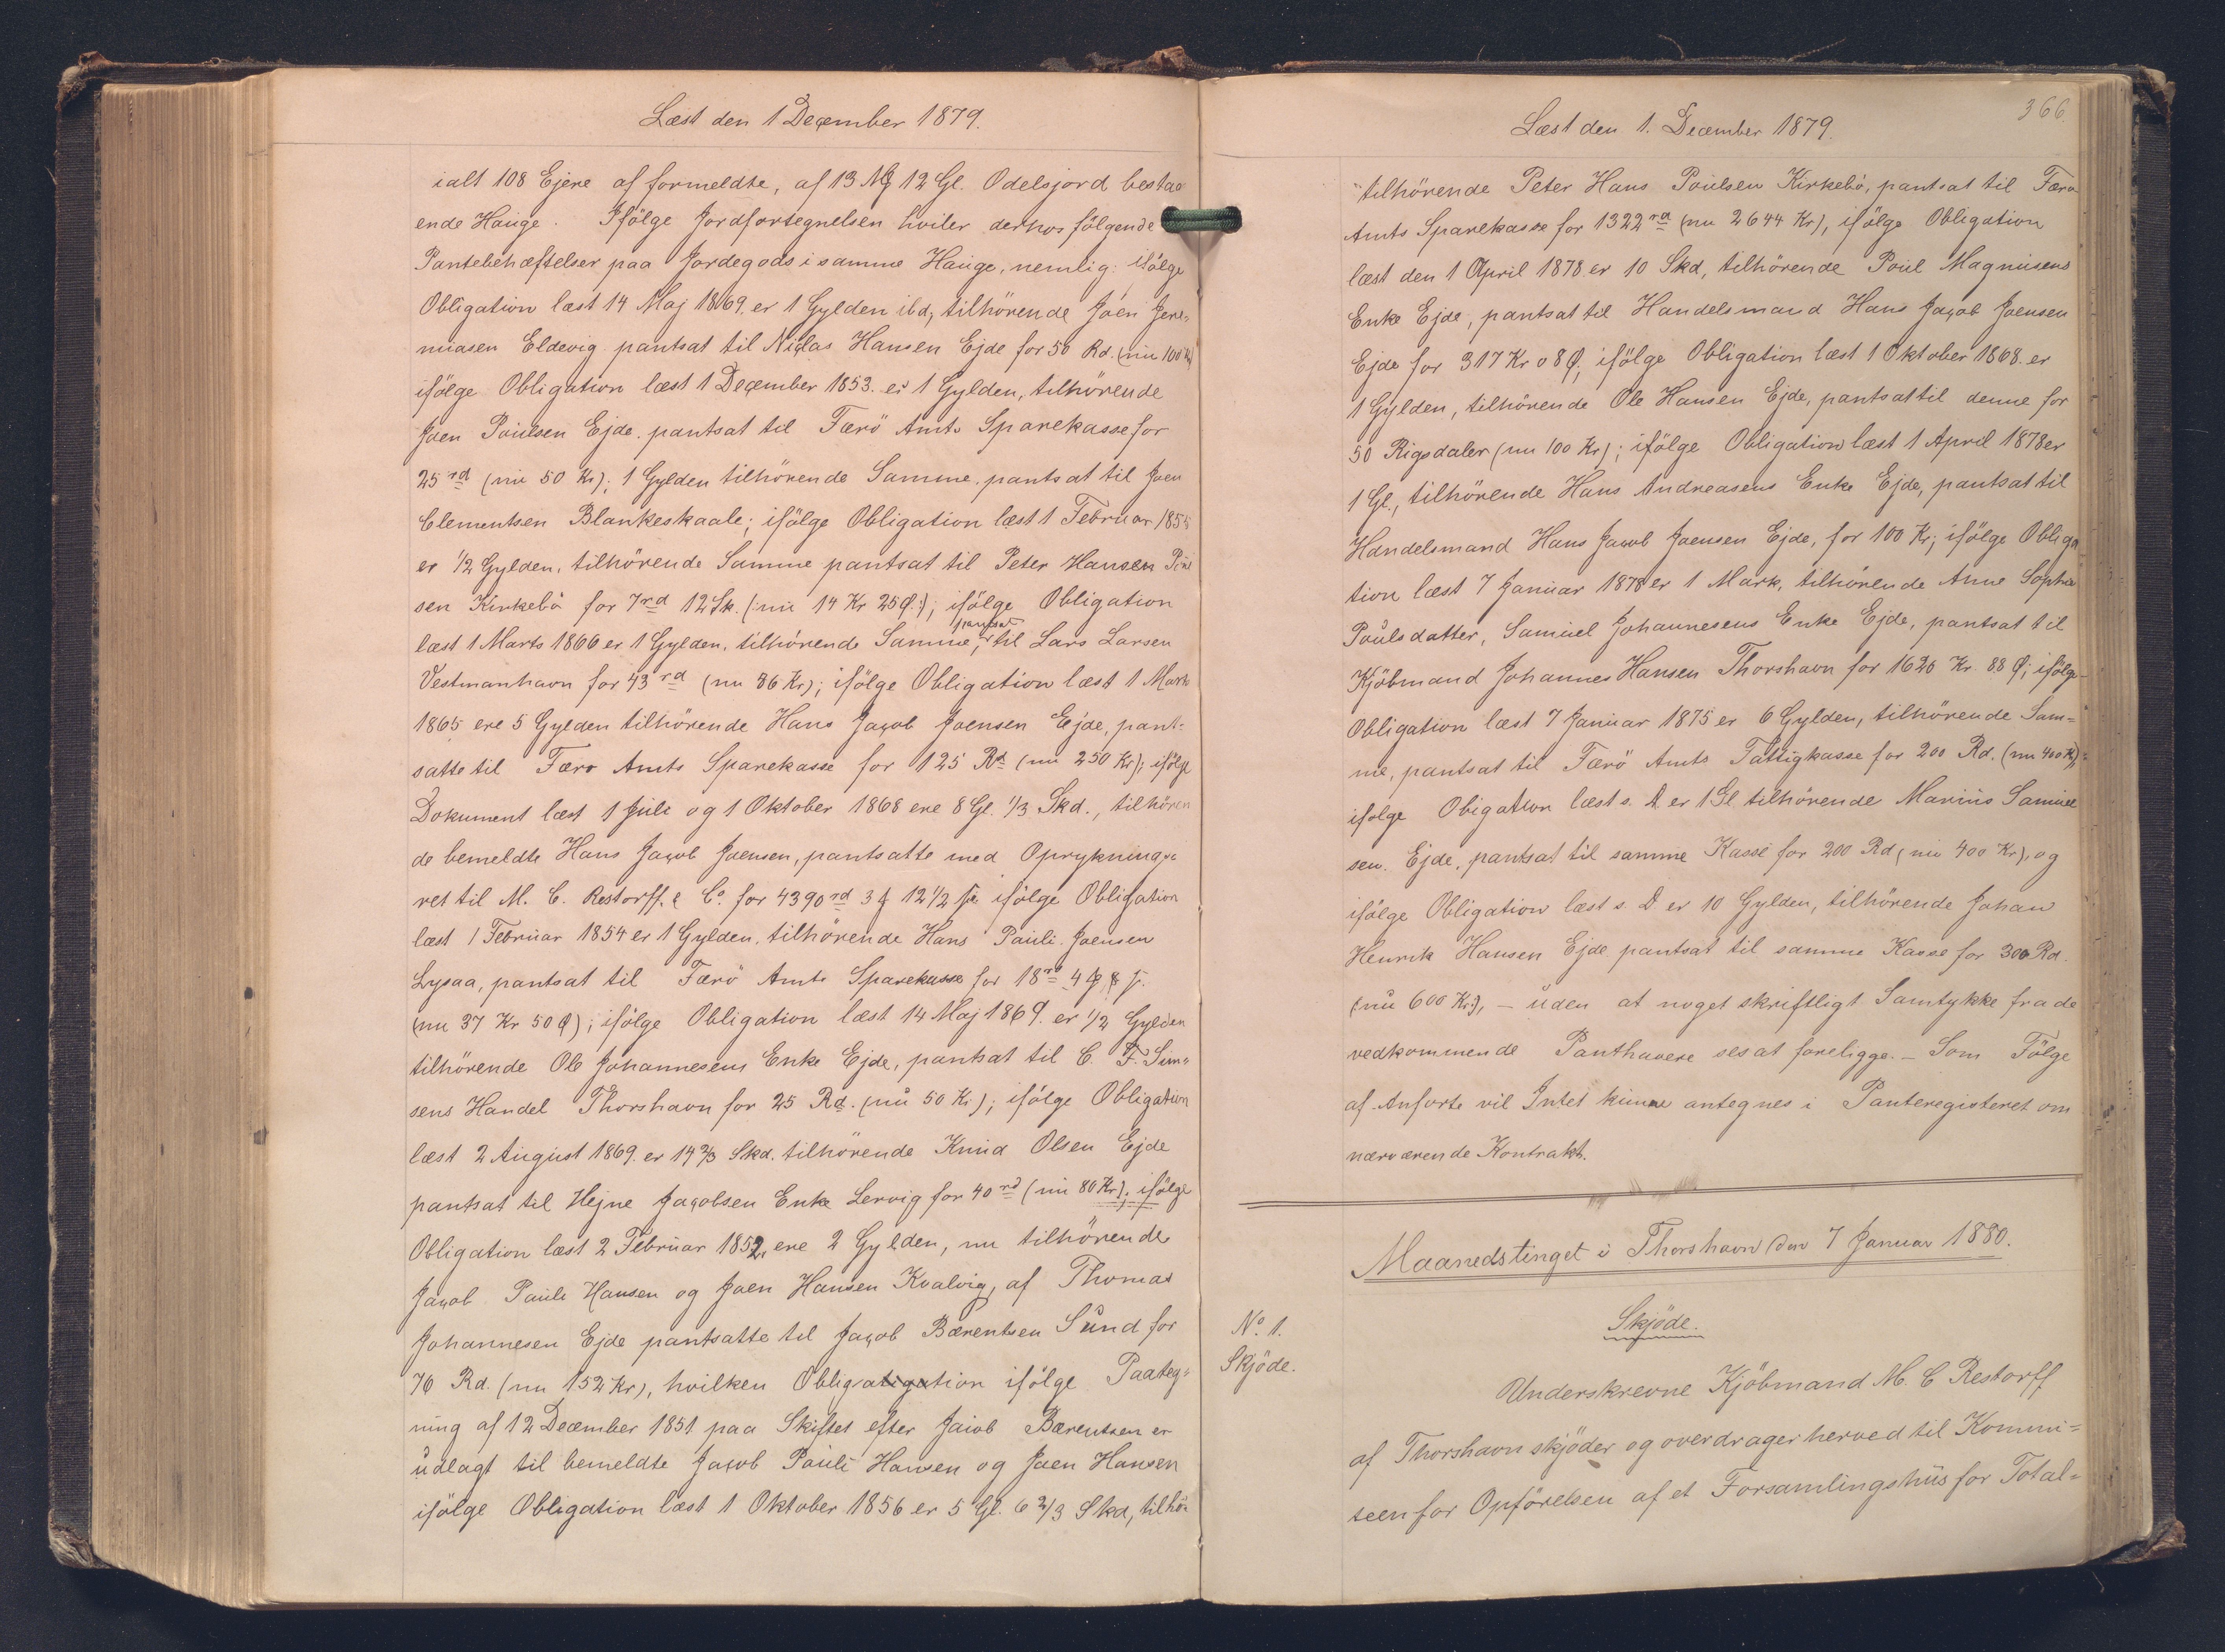 Læst den 1 December 1879.
ialt 108 Ejere af formeldte, af 13 Mk 12 Gl. Odelsjord bestaa
ende Hauge. Ifölge Jordfortegnelsen hviler derhos fölgende
Pantebehæftelser paa Jordegods i samme Hauge, nemlig: ifölge
Obligation læst 14 Maj 1869. er 1 Gylden ibd, tilhörende Joen Jere-
miasen Eldevig pantsat til Niclas Hansen Ejde for 50 Rd. (nu 100 Kr)
ifölge Obligation læst 1 December 1853. er 1 Gylden, tilhörende
Joen Poulsen Ejde. pantsat til Færö Amts Sparekasse for
25 rd (nu 50 Kr); 1 Gylden tilhörende Samme, pantsat til Joen
Clementsen Blankeskaale; ifölge Obligation læst 1 Februar 1855
er 1/2 Gylden, tilhörende Samme pantsat til Peter Hansen Poul
sen Kirkebö for 7 rd 12 Sk. (nu 14 Kr 25 Ø:); ifölge Obligation
læst 1 Marts 1866 er 1 Gylden, tilhörende Samme, pantsat til Lars Larsen
Vestmanhavn for 43 rd (nu 86 Kr); ifölge Obligation læst 1 Marts
1865 ere 5 Gylden tilhörende Hans Jacob Joensen Ejde, pant-
satte til Færo Amts Sparekasse for 125 Rd (nu 250 Kr); ifölge
Dokument læst 1 Juli og 1 Oktober 1868 ere 8 Gl. 1/3 Skd., tilhören
de bemeldte Hans Jacob Joensen, pantsatte med Oprykningsr
ret til M. C. Restorff & Co. for 4390 rd 3 ƒ 12 1/2 ſk ifölge Obligation
læst 1 Februar 1854 er 1 Gylden, tilhörende Hans Pauli Joensen
Lysaa, pantsat til Færö Amts Sparekasse for 18 rd 4 ƒ 8 ſ.
(nu 37 Kr 50 Ø); ifölge Obligation læst 14 Maj 1869. er 1/2 Gylden
tilhörende Ole Johannesens Enke Ejde, pantsat til C. F. Sim-
sens Handel Thorshavn for 25 Rd. (nu 50 Kr); ifölge Obligation
læst 2 August 1869. er 14 2/3 Skd. tilhörende Knud Olsen Ejde
pantsat til Hejne Jacobsen Enke Lervig for 40 rd (nu 80 Kr); ifölge
Obligation læst 2 Februar 1852, ere 2 Gylden, nu tilhörende
Jacob Pauli Hansen og Joen Hansen Kvalvig, af Thomas
Johannesen Ejde pantsatte til Jacob Bærentsen Sund for
76 Rd. (nu 152 Kr), hvilken Obligatigation ifölge Paateg-
ning af 12 December 1851 paa Skiftet efter Jacob Bærentsen er
udlagt til bemeldte Jacob Pauli Hansen og Joen Hansen
ifölge Obligation læst 1 Oktober 1856 er 5 Gl. 6 2/3 Skd, tilhö-
366.
Læst den 1. December 1879.
tilhörende Peter Hans Poulsen Kirkebö, pantsat til Færö
Amts Sparekasse for 1322 rd (nu 2644 Kr), ifölge Obligation
læst den 1 April 1878 er 10 Skd, tilhörende Poul Magnusens
Enke Ejde, pantsat til Handelsmand Hans Jacob Joensen
Ejde for 317 Kr 08 Ø; ifölge Obligation læst 1 Oktober 1868. er
1 Gylden, tilhörende Ole Hansen Ejde, pantsat til denne for
50 Rigsdaler (nu 100 Kr); ifölge Obligation læst 1 April 1878 er
1 Gl., tilhörende Hans Andreasens Enke Ejde, pantsat til
Handelsmand Hans Jacob Joensen Ejde, for 100 Kr; ifölge Obliga
tion læst 7 Januar 1878 er 1 Mark, tilhörende Anne Sophie
Poulsdatter, Samuel Johannesens Enke Ejde, pantsat til
Kjöbmand Johannes Hansen Thorshavn for 1620 Kr. 88 Ø; ifölge
Obligation læst 7 Januar 1875 er 6 Gylden, tilhörende Sam=
me, pantsat til Færö Amts Fattigkasse for 200 Rd. (nu 400 Kr)
ifolge Obigation læst s. D. er 1 Gl tilhörende Marius Samuel
sen. Ejde, pantsat til samme Kasse for 200 Rd (nu 400 Kr), og
ifölge Obligation læst s. D er 10 Gylden, tilhörende Johan
Henrik Hansen Ejde pantsat til samme Kasse for 300 Rd.
(nu 600 Kr), — uden at noget skriftligt Samtykke fra de
vedkommende Panthavere ses at foreligge. — Som Fölge
af Anförte vil Intet kunne antegnes i Panteregisteret om
nærværende Kontrakt.
Maanedstinget i Thorshavn den 7 Januar 1880.
No. 1.
Skjöde.
Skjöde.
Underskrevne Kjöbmand M. C Restorff
af Thorshavn skjöder og overdrager herved til Kommi=
teen for Opförelsen af et Forsamlingshus for Total=